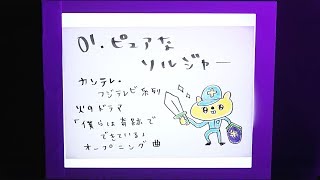 01.ピュアな
ソルジャー
カンテレ・
フジテレビ系列
火9ドラマ
「僕らは奇跡で
できている」
オープニング曲